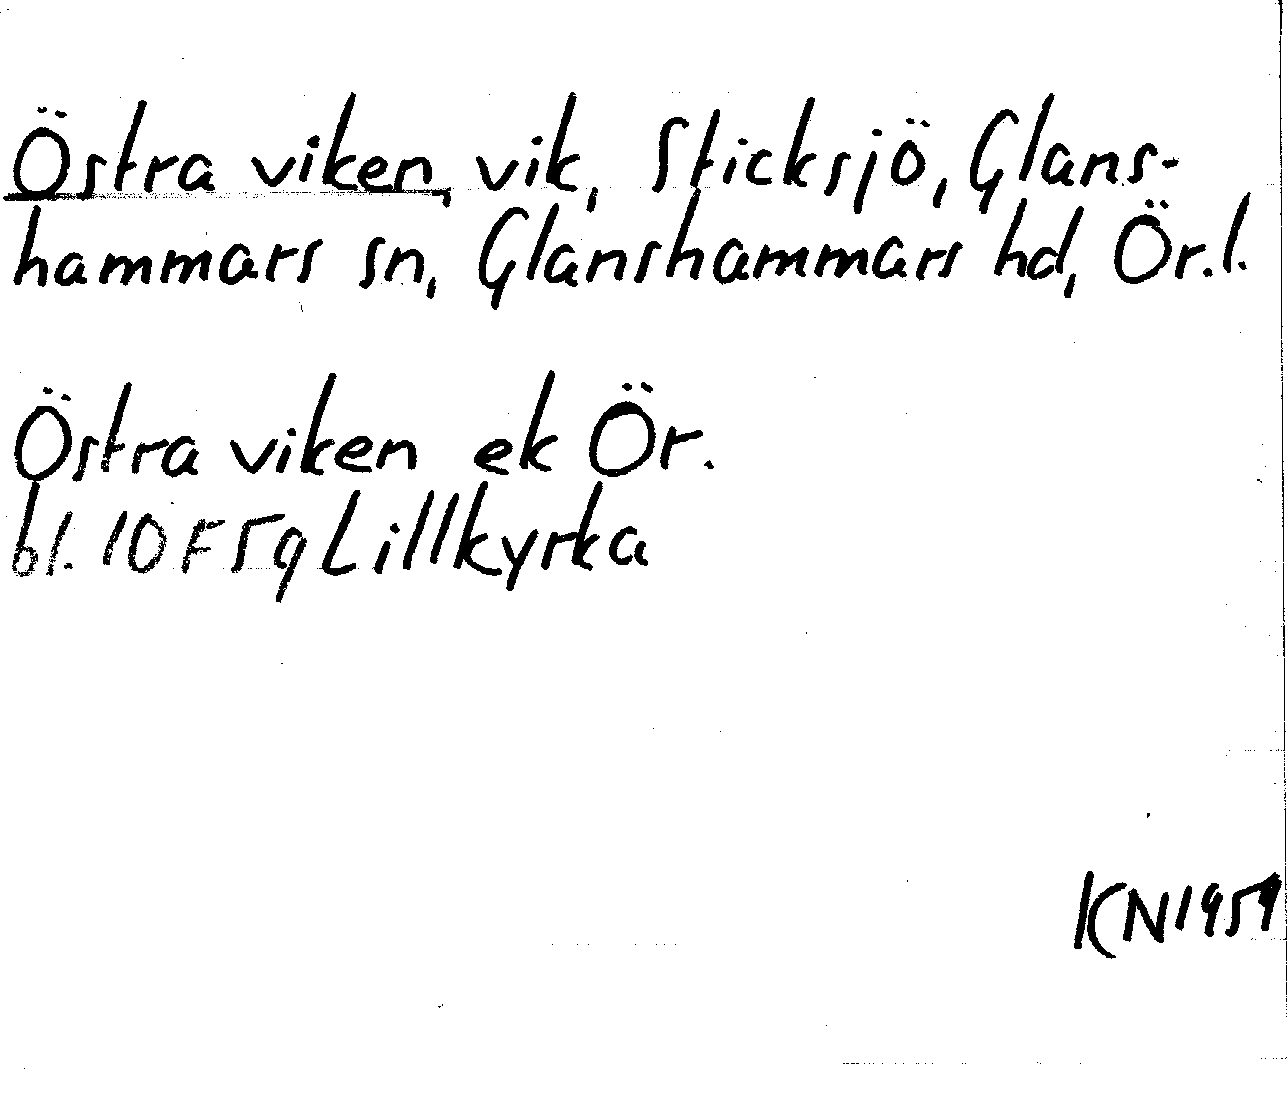 Östra viken, vik, Sticksjö, Glans-
hammars sn, Glanshammars hd, Ör. l.
Östra viken ek Ör.
bl. 10 F 5g Lillkyrka
KN 1959